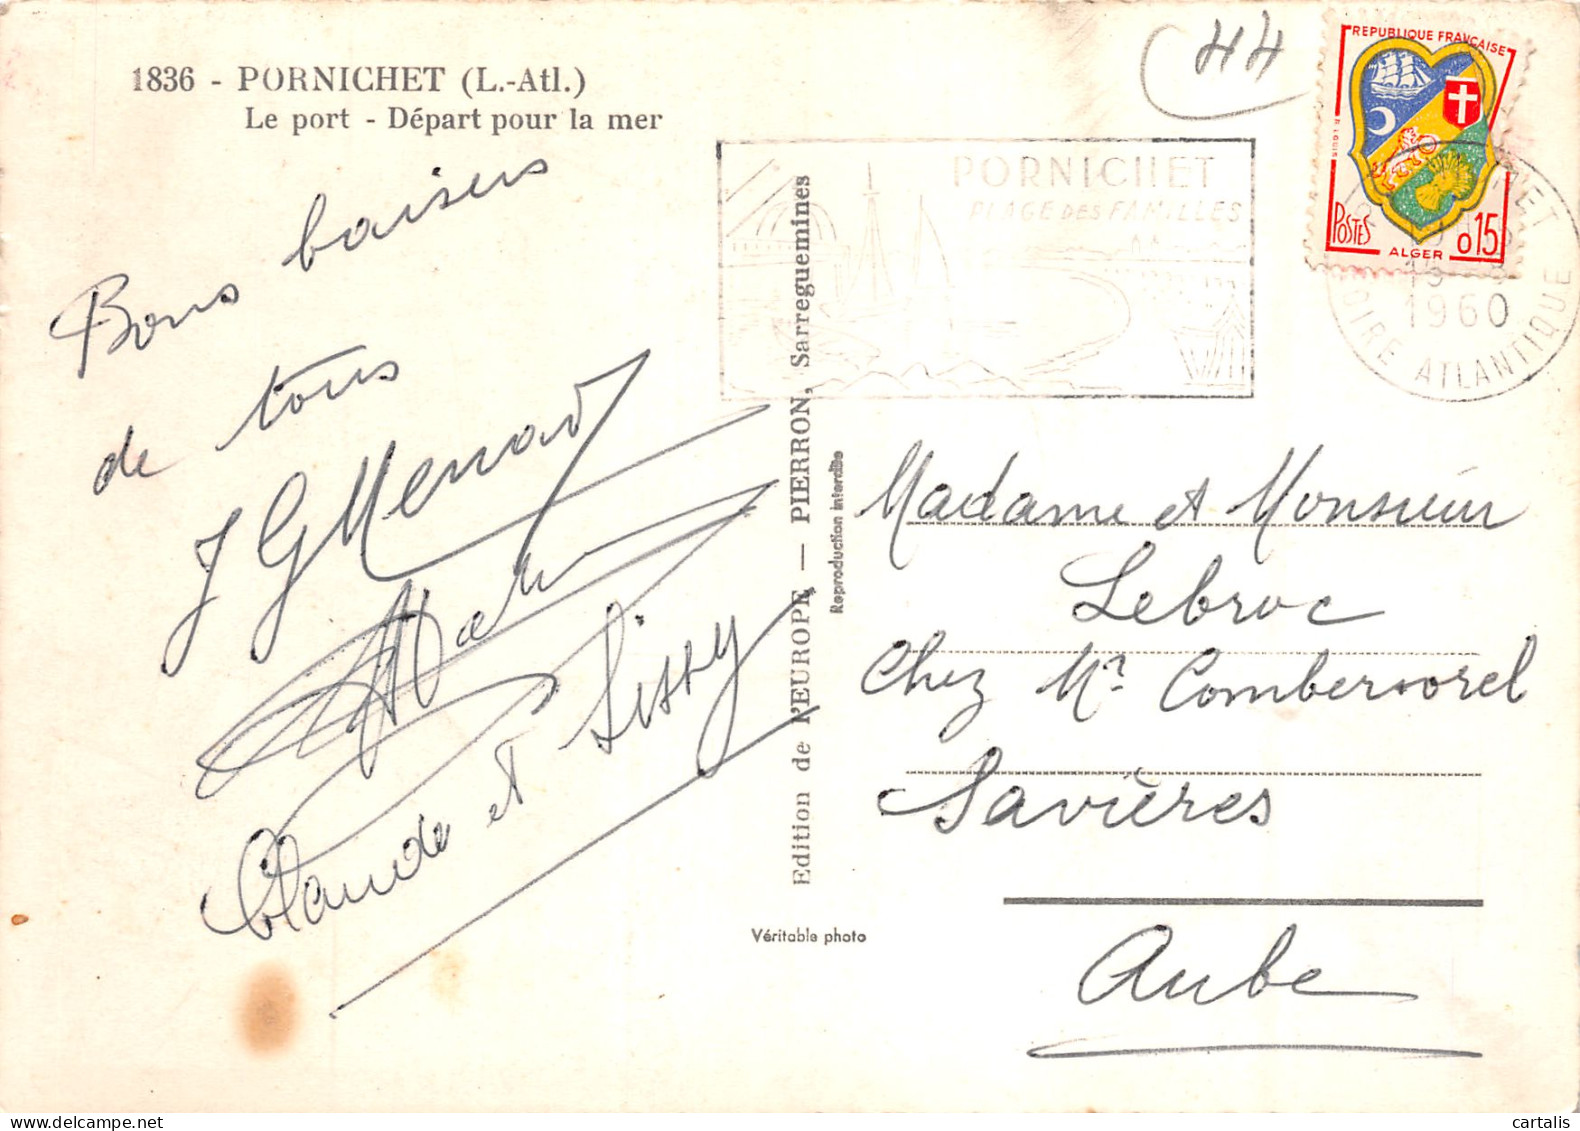 1836 - PORNICHET (L.-Atl.)
Le port - Départ pour la mer
44
REPUBLIQUE FRANÇAISE
POSTES
ALGER
0 15
PORNICHET
PLAGE DES FAMILLES
1960
LOIRE ATLANTIQUE
Bons baisers
de tous
Claude et Sissy
Edition de l'EUROPE — PIERRON, Sarreguemines
Reproduction interdite
Véritable photo
Madame et Monsieur
Lebroc
Chez Mr
Savières
Aube
cartalis